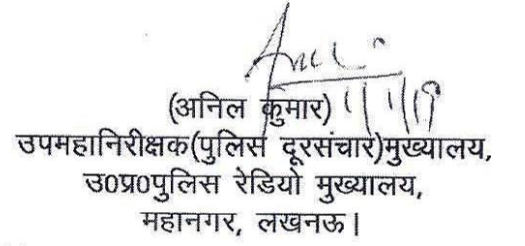 (अनिल कुमार)
उपमहानिरीक्षक(पुलिस दूरसंचार)मुख्यालय,
उ0प्र0पुलिस रेडियो मुख्यालय,
महानगर, लखनऊ।